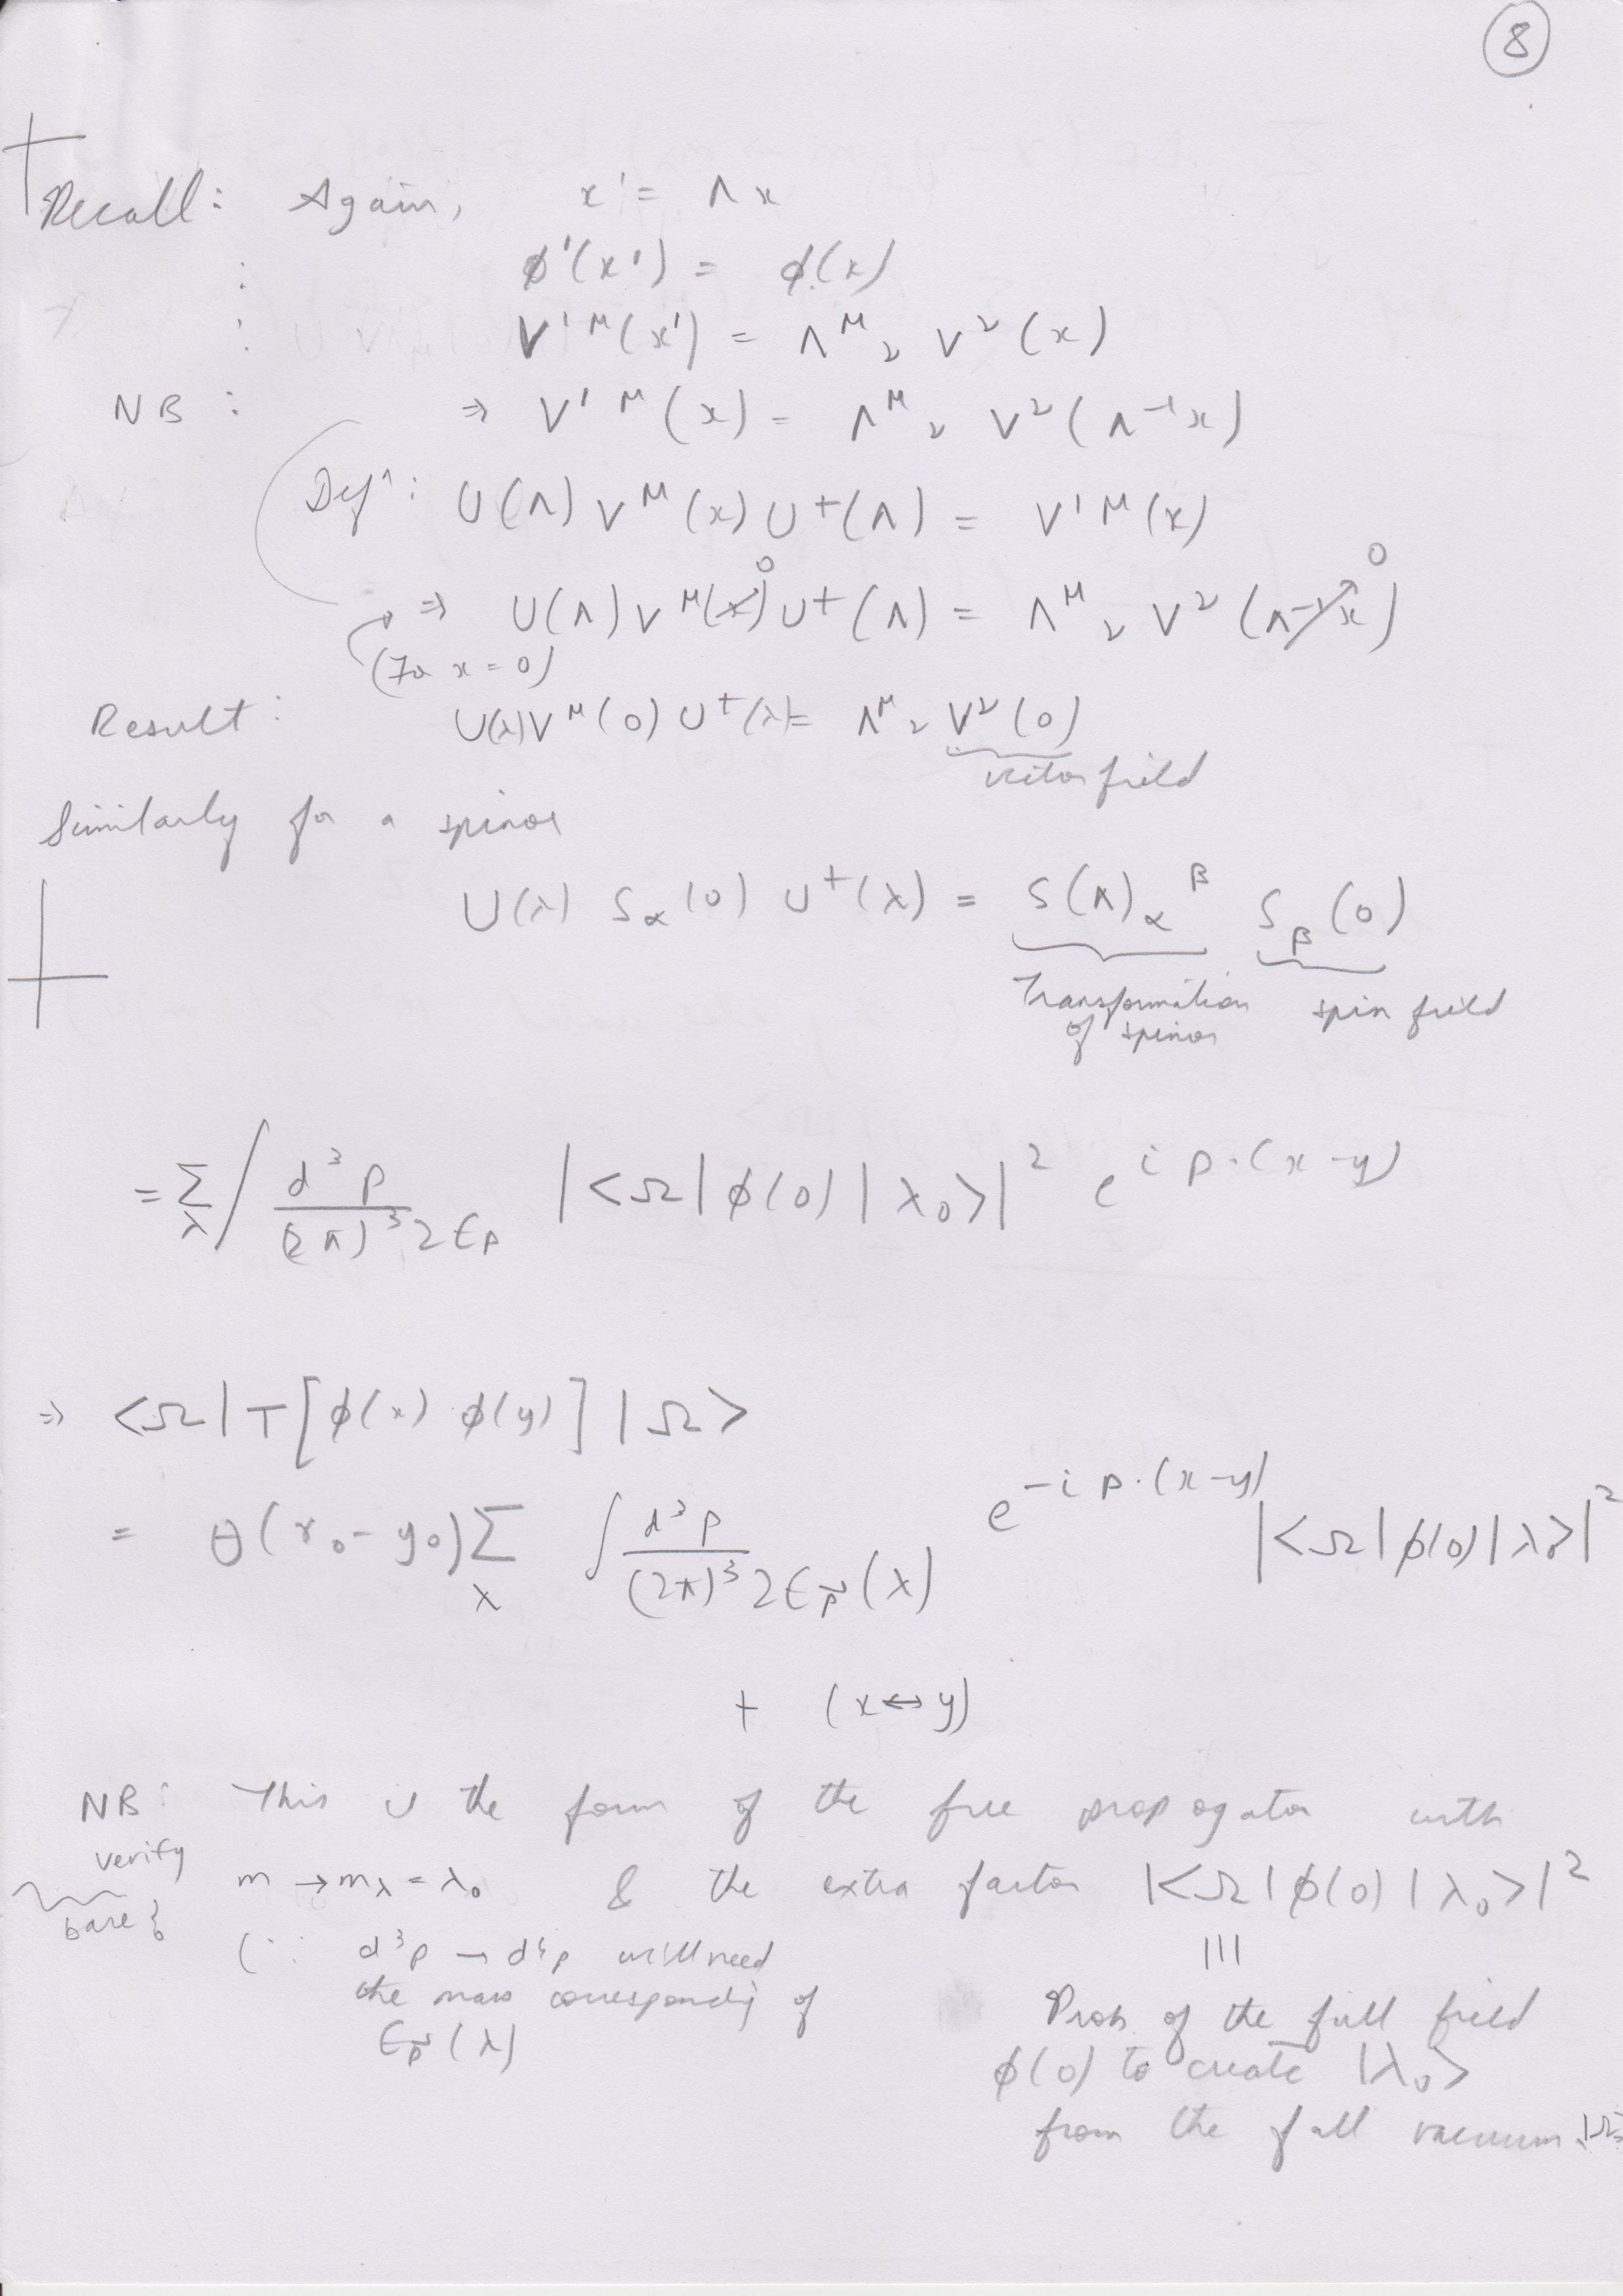 8
Recall: Again, x' = Λx
: φ'(x') = φ(x)
: V'^μ(x') = Λ^μ_ν V^ν(x)
NB : ⇒ V'^μ(x) = Λ^μ_ν V^ν(Λ^-1 x)
Defⁿ: U(Λ) V^μ(x) U†(Λ) = V'^μ(x)
0 0
⇒ U(Λ) V^μ(x) U†(Λ) = Λ^μ_ν V^ν(Λ^-1 x)
(For x = 0)
Result: U(λ) V^μ(0) U†(λ) = Λ^μ_ν V^ν(0)
vector field
Similarly for a spinor
U(λ) S_α(0) U†(λ) = S(Λ)_α^β S_β(0)
Transformation spin field
of spinor
= Σ_λ ∫ d³p / (2π)³ 2E_p |<Ω|φ(0)|λ₀>|² e^{i p·(x-y)}
⇒ <Ω|T[φ(x) φ(y)]|Ω>
= θ(x₀-y₀) Σ_λ ∫ d³p / (2π)³ 2E_p⃗(λ) e^{-i p·(x-y)} |<Ω|φ(0)|λ₀>|²
+ (x↔y)
NB: This is the form of the free propagator with
verify m → m_λ = λ₀ & the extra factor |<Ω|φ(0)|λ₀>|²
bare }
(∵ d³p → d⁴p will need |||
the mass corresponding of Prob. of the full field
E_p⃗(λ) φ(0) to create |λ₀>
from the full vacuum |Ω>